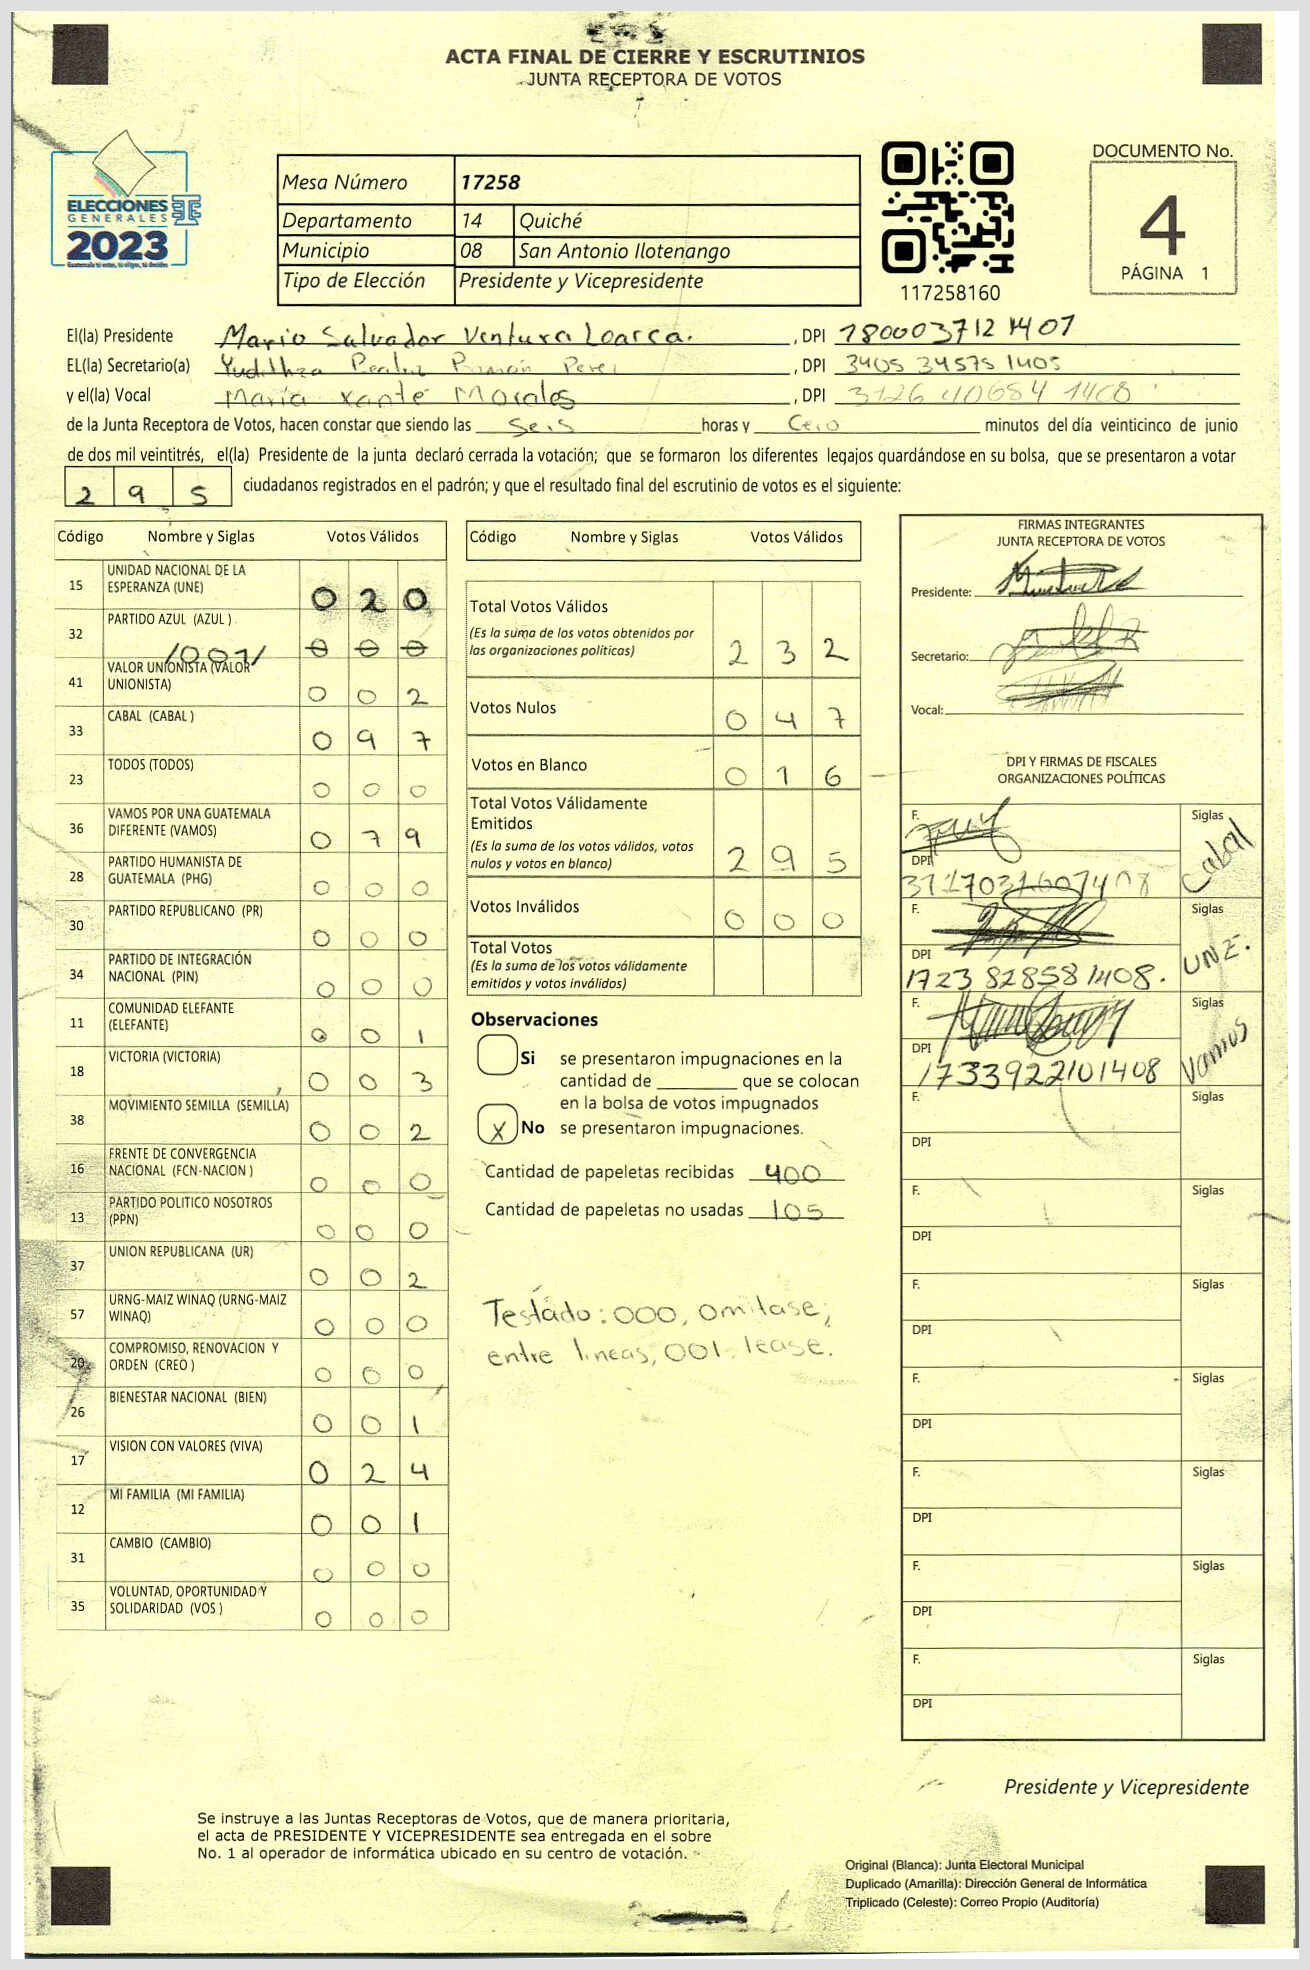 ACTA FINAL DE CIERRE Y ESCRUTINIOS
JUNTA RECEPTORA DE VOTOS
ELECCIONES
GENERALES
2023
Mesa Número 17258
Departamento 14 Quiché
Municipio 08 San Antonio Ilotenango
Tipo de Elección Presidente y Vicepresidente
117258160
DOCUMENTO No.
4
PÁGINA 1
El(la) Presidente Mario Salvador Ventura Loarca. , DPI 1800037121401
EL(la) Secretario(a) , DPI 3405 34575 1405
y el(la) Vocal María Xanté Morales , DPI 3126 40684 1408
de la Junta Receptora de Votos, hacen constar que siendo las Seis horas y Cero minutos del día veinticinco de junio
de dos mil veintitrés, el(la) Presidente de la junta declaró cerrada la votación; que se formaron los diferentes legajos quardándose en su bolsa, que se presentaron a votar
2 9 5 ciudadanos registrados en el padrón; y que el resultado final del escrutinio de votos es el siguiente:
Código Nombre y Siglas Votos Válidos
15 UNIDAD NACIONAL DE LA ESPERANZA (UNE) 0 2 0
32 PARTIDO AZUL (AZUL ) 0 0 0
/001/
41 VALOR UNIONISTA (VALOR UNIONISTA) 0 0 2
33 CABAL (CABAL ) 0 9 7
23 TODOS (TODOS) 0 0 0
36 VAMOS POR UNA GUATEMALA DIFERENTE (VAMOS) 0 7 9
28 PARTIDO HUMANISTA DE GUATEMALA (PHG) 0 0 0
30 PARTIDO REPUBLICANO (PR) 0 0 0
34 PARTIDO DE INTEGRACIÓN NACIONAL (PIN) 0 0 0
11 COMUNIDAD ELEFANTE (ELEFANTE) 0 0 1
18 VICTORIA (VICTORIA) 0 0 3
38 MOVIMIENTO SEMILLA (SEMILLA) 0 0 2
16 FRENTE DE CONVERGENCIA NACIONAL (FCN-NACION ) 0 0 0
13 PARTIDO POLITICO NOSOTROS (PPN) 0 0 0
37 UNION REPUBLICANA (UR) 0 0 2
57 URNG-MAIZ WINAQ (URNG-MAIZ WINAQ) 0 0 0
20 COMPROMISO, RENOVACION Y ORDEN (CREO ) 0 0 0
26 BIENESTAR NACIONAL (BIEN) 0 0 1
17 VISION CON VALORES (VIVA) 0 2 4
12 MI FAMILIA (MI FAMILIA) 0 0 1
31 CAMBIO (CAMBIO) 0 0 0
35 VOLUNTAD, OPORTUNIDAD Y SOLIDARIDAD (VOS ) 0 0 0
Código Nombre y Siglas Votos Válidos
Total Votos Válidos
(Es la suma de los votos obtenidos por las organizaciones políticas) 2 3 2
Votos Nulos 0 4 7
Votos en Blanco 0 1 6
Total Votos Válidamente Emitidos
(Es la suma de los votos válidos, votos nulos y votos en blanco) 2 9 5
Votos Inválidos 0 0 0
Total Votos
(Es la suma de los votos válidamente emitidos y votos inválidos)
Observaciones
Si se presentaron impugnaciones en la
cantidad de ________ que se colocan
en la bolsa de votos impugnados
X No se presentaron impugnaciones.
Cantidad de papeletas recibidas 400
Cantidad de papeletas no usadas 105
Testado: 000, omitase;
entre lineas, 001. lease.
FIRMAS INTEGRANTES
JUNTA RECEPTORA DE VOTOS
Presidente:
Secretario:
Vocal:
DPI Y FIRMAS DE FISCALES
ORGANIZACIONES POLÍTICAS
F. Siglas Cabal
DPI
F. Siglas UNE.
DPI 1723 82858 1408.
F. Siglas Vamos
DPI 1733922101408
F. Siglas
DPI
F. Siglas
DPI
F. Siglas
DPI
F. Siglas
DPI
F. Siglas
DPI
F. Siglas
DPI
F. Siglas
DPI
Presidente y Vicepresidente
Se instruye a las Juntas Receptoras de Votos, que de manera prioritaria,
el acta de PRESIDENTE Y VICEPRESIDENTE sea entregada en el sobre
No. 1 al operador de informática ubicado en su centro de votación.
Original (Blanca): Junta Electoral Municipal
Duplicado (Amarilla): Dirección General de Informática
Triplicado (Celeste): Correo Propio (Auditoría)